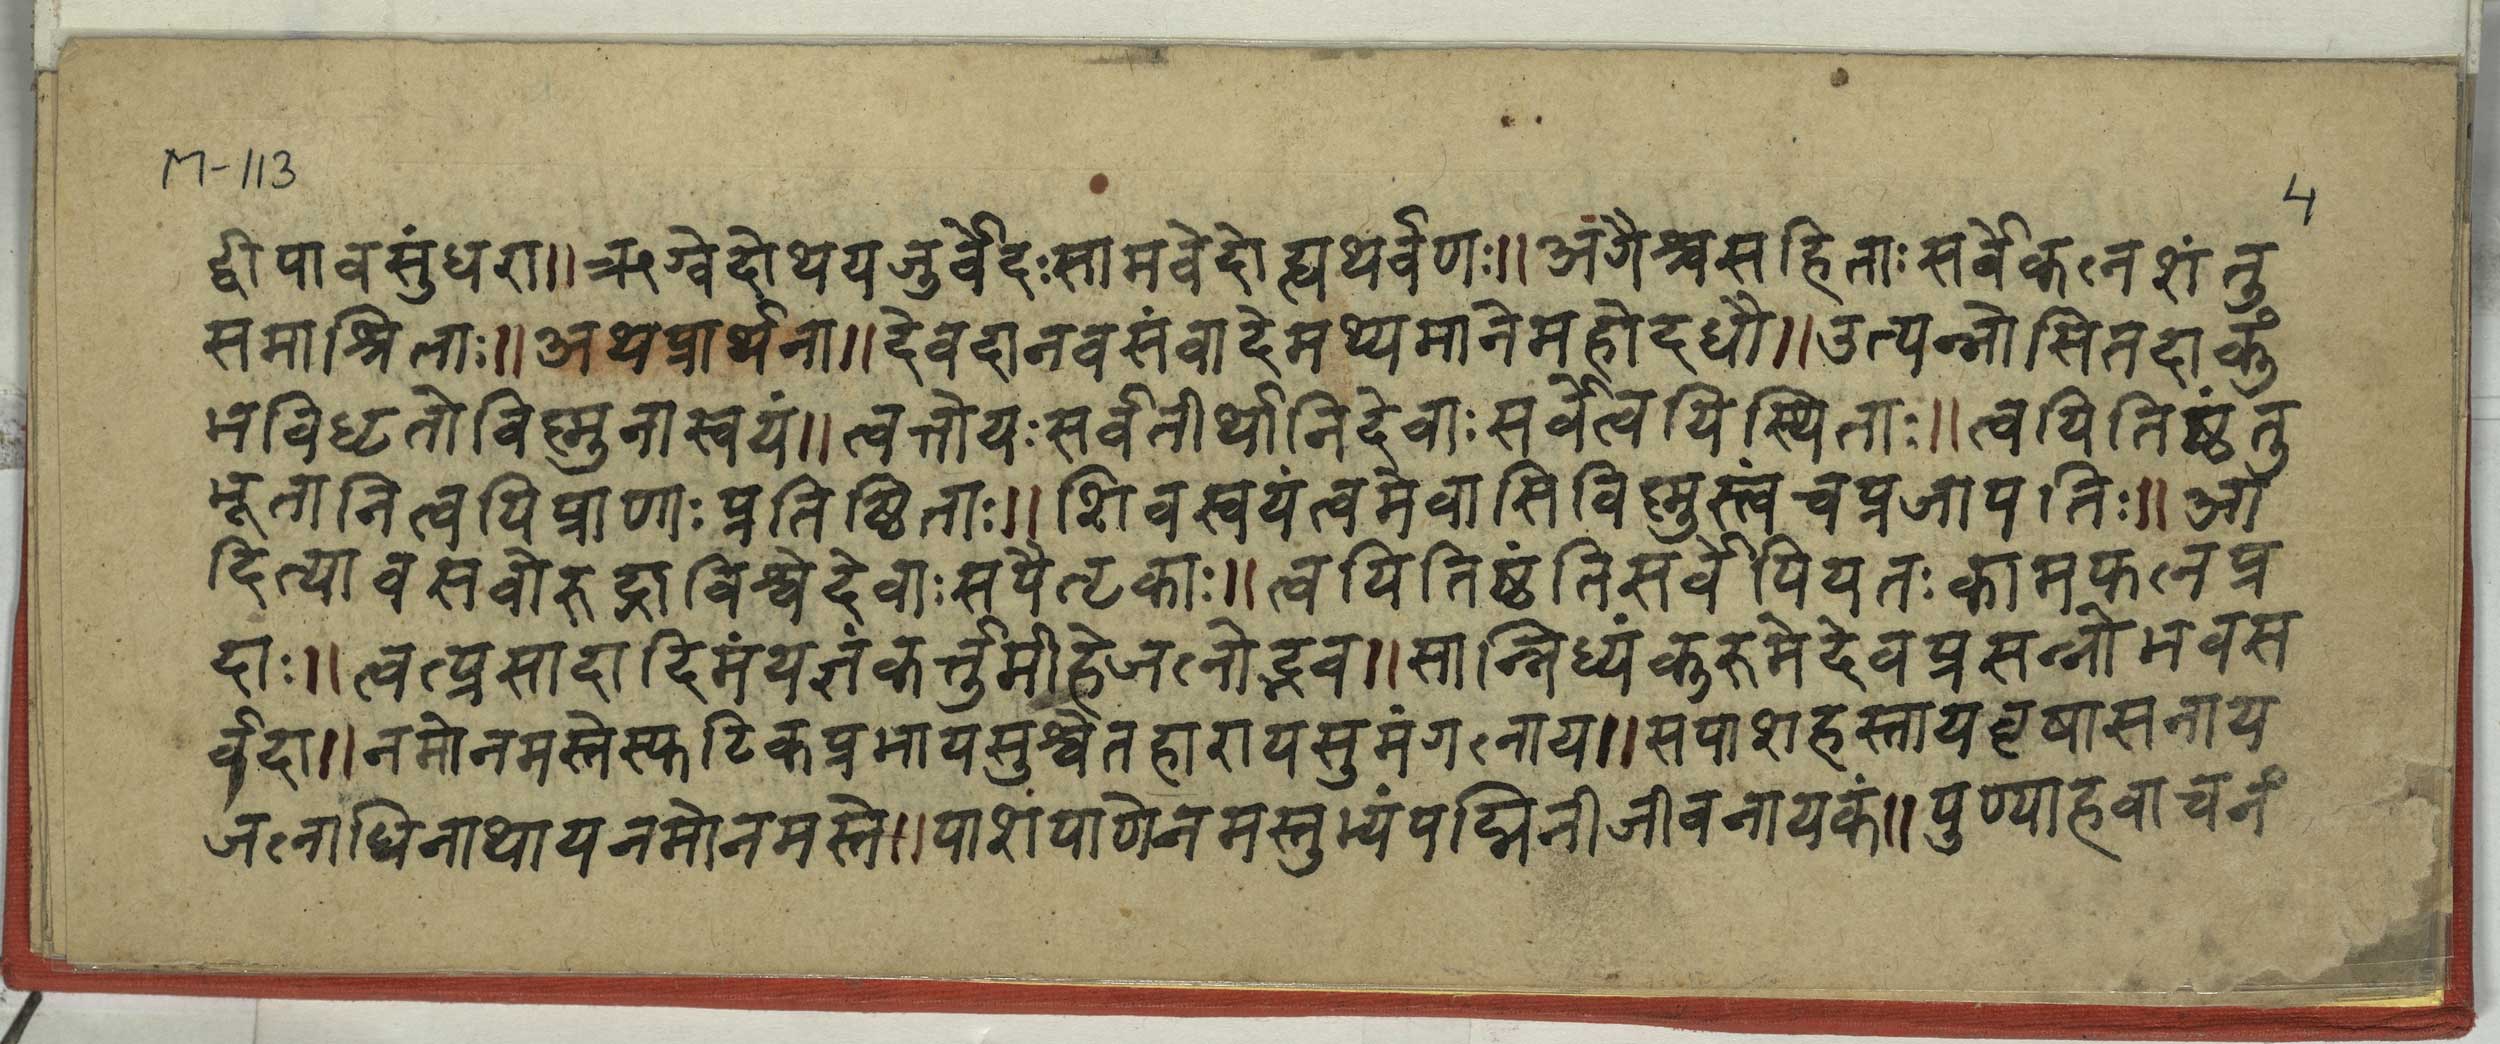 M-113
4
द्वीपावसुंधरा॥ऋग्वेदोथयजुर्वेदःसामवेदोह्यथर्वणः॥अंगैश्चसहिताःसर्वेकलशंतु
समाश्रिताः॥अथप्रार्थना॥देवदानवसंवादेमथ्यमानेमहोदधौ॥उत्पन्नोसितदाकुं
भविधृतोविष्णुनास्वयं॥त्वत्तोयःसर्वतीर्थानिदेवाःसर्वेत्वयिस्थिताः॥त्वयितिष्ठंतु
भूतानित्वयिप्राणाःप्रतिष्ठिताः॥शिवस्वयंत्वमेवासिविष्णुस्त्वंचप्रजापतिः॥आ
दित्यावसवोरुद्राविश्वेदेवाःसपैतृकाः॥त्वयितिष्ठंतिसर्वेपियतःकामफलप्र
दाः॥त्वत्प्रसादादिमंयज्ञंकर्त्तुमीहेजलोद्भव॥सान्निध्यंकुरुमेदेवप्रसन्नोभवस
र्वदा॥नमोनमस्तेस्फटिकप्रभायसुश्वेतहारायसुमंगलाय॥सपाशहस्तायवृषासनाय
जलाधिनाथायनमोनमस्ते॥पाशंपाणेनमस्तुभ्यंपद्मिनीजीवनायकं॥पुण्याहवाचनं